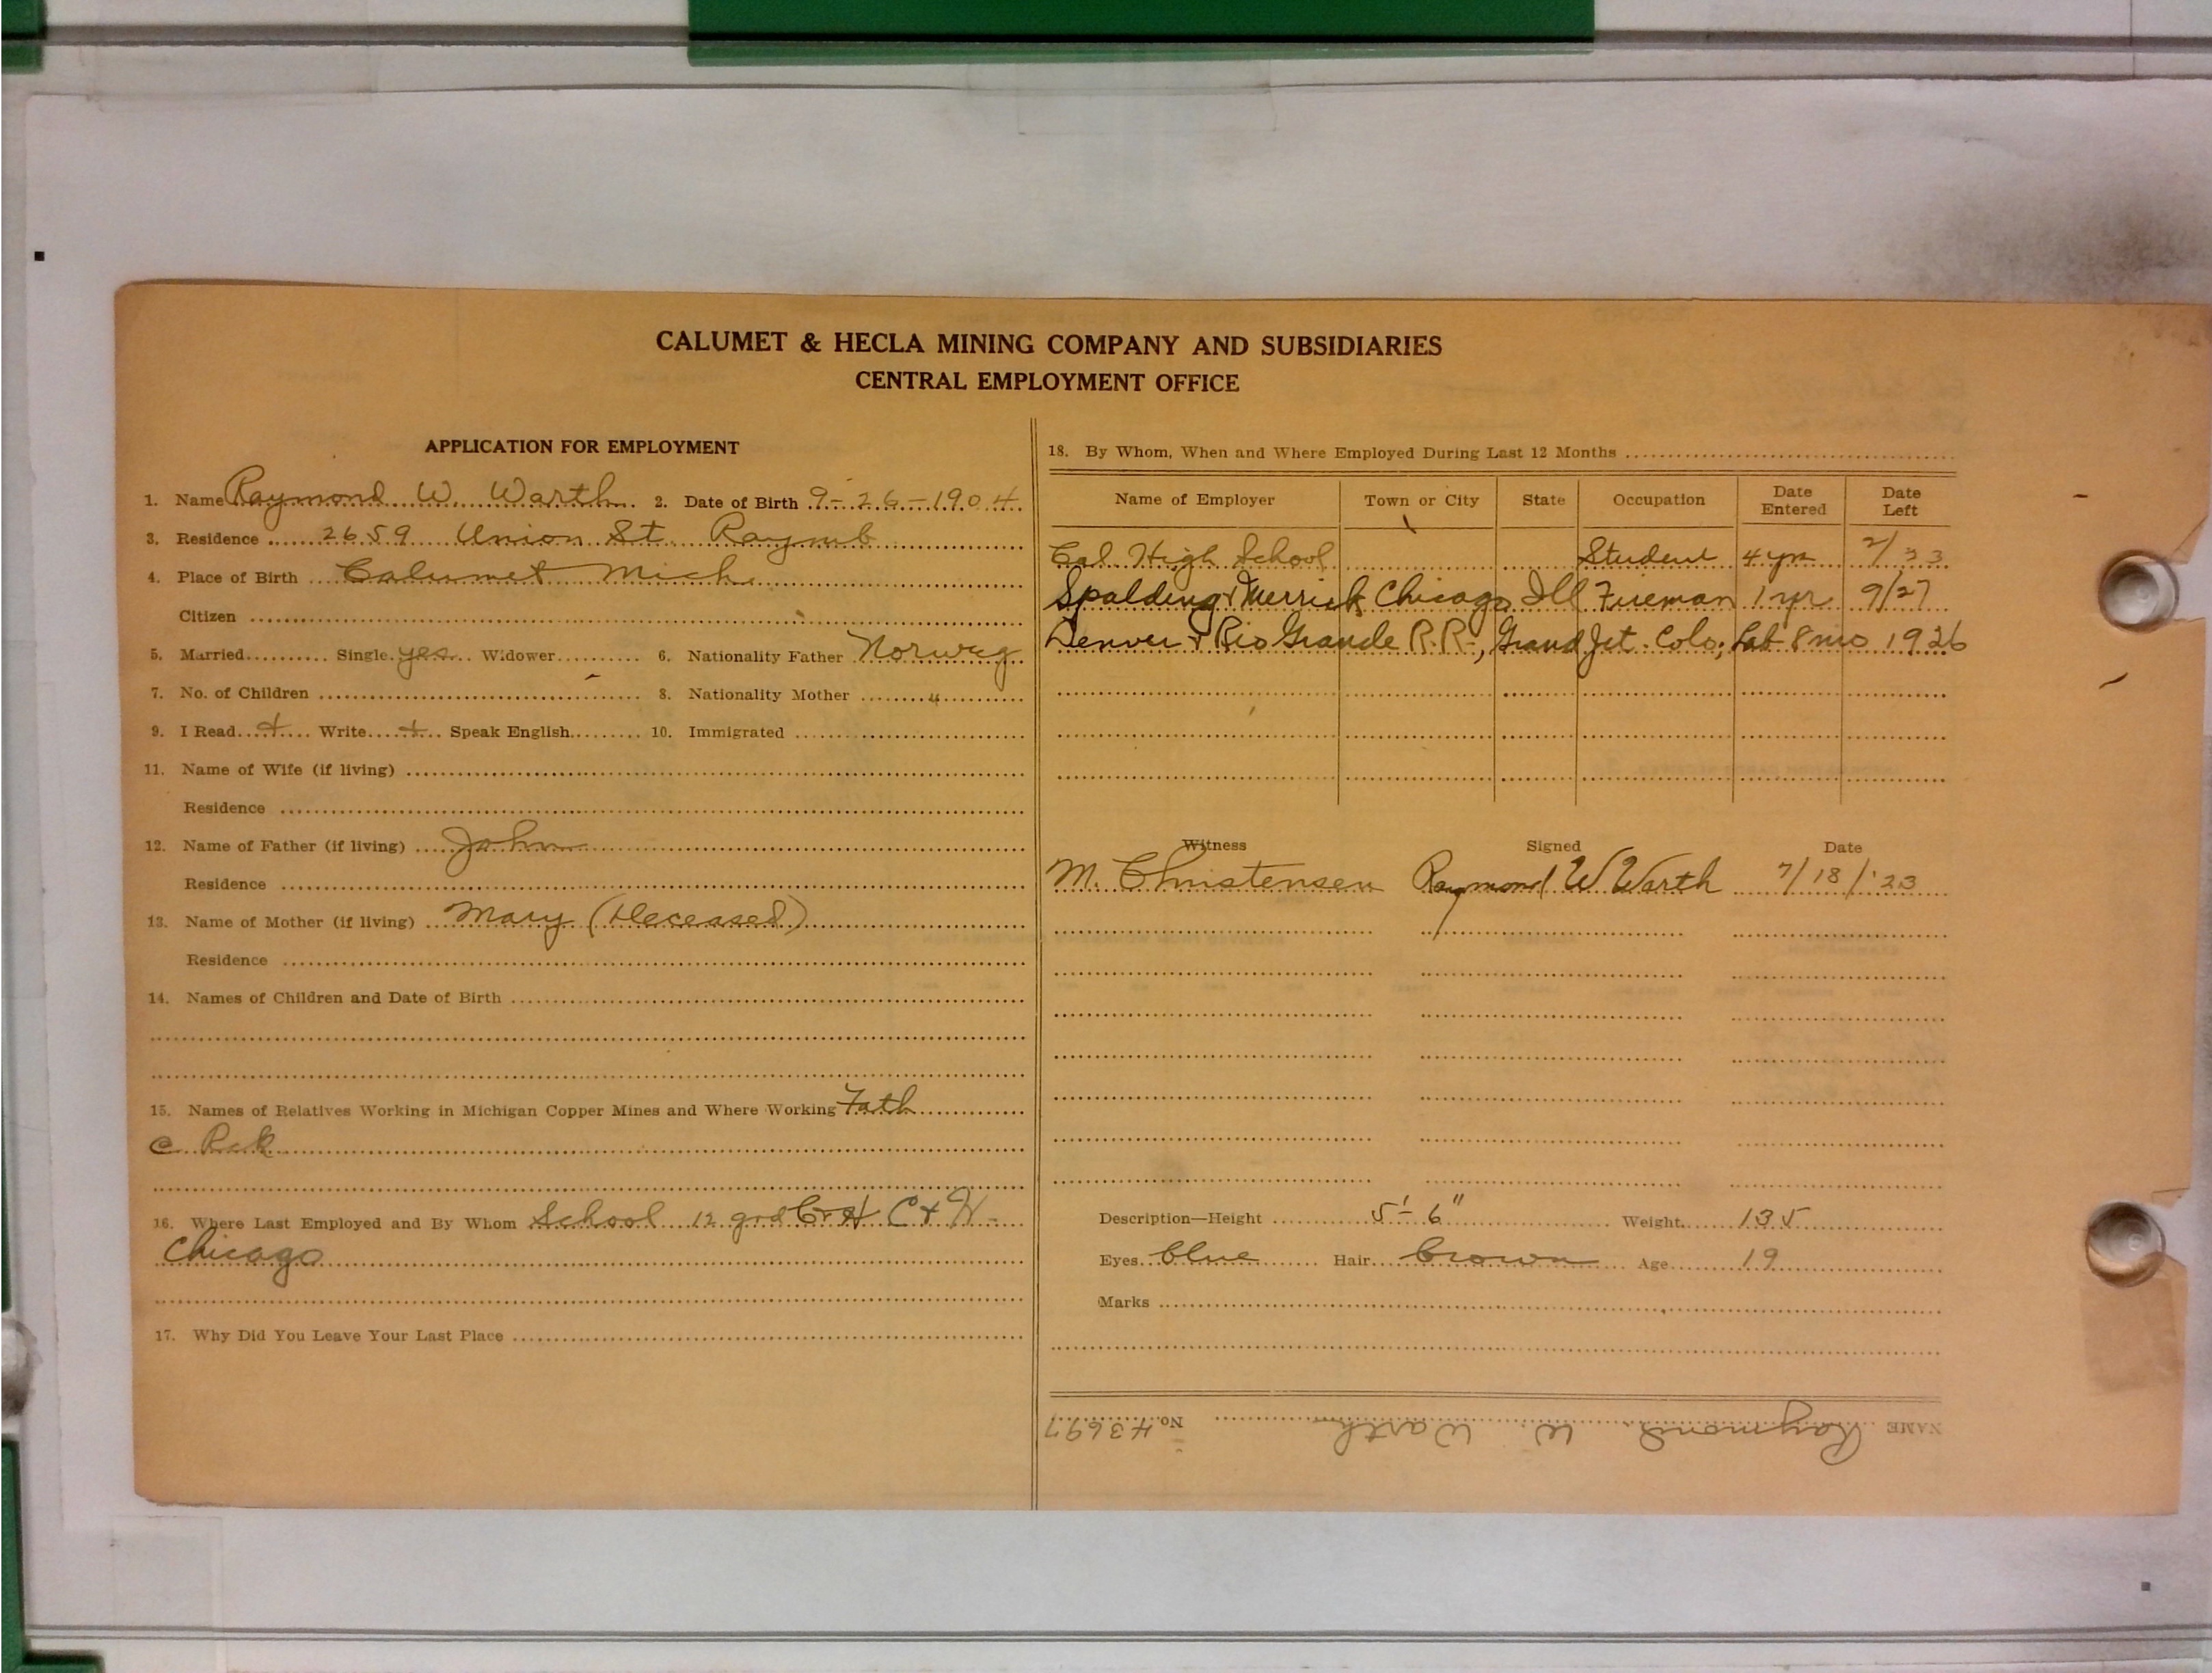 CALUMET & HECLA MINING COMPANY AND SUBSIDIARIES
CENTRAL EMPLOYMENT OFFICE
APPLICATION FOR EMPLOYMENT
1. Name Raymond W. Warth 2. Date of Birth 9-26-1904
3. Residence 2659 Union St. Raymb
4. Place of Birth Calumet Mich.
Citizen
5. Married Single yes Widower 6. Nationality Father Norweg
7. No. of Children 8. Nationality Mother "
9. I Read + Write + Speak English 10. Immigrated
11. Name of Wife (if living)
Residence
12. Name of Father (if living) John
Residence
13. Name of Mother (if living) Mary (Deceased)
Residence
14. Names of Children and Date of Birth
15. Names of Relatives Working in Michigan Copper Mines and Where Working Fath
C. Rek
16. Where Last Employed and By Whom School 12 grd C+H C+H
Chicago
17. Why Did You Leave Your Last Place
18. By Whom, When and Where Employed During Last 12 Months
Name of Employer Town or City State Occupation Date Entered Date Left
Cal. High School Student 4 yrs 2/23
Spalding & Merrick Chicago Ill Fireman 1 yr 9/27
Denver & Rio Grande R.R., Grand Jct. Colo; Lab 8 mo 1926
Witness Signed Date
M. Christensen Raymond W Warth 7/18/'23
Description—Height 5'-6" Weight 135
Eyes blue Hair brown Age 19
Marks
NAME Raymond W. Warth No. 43697